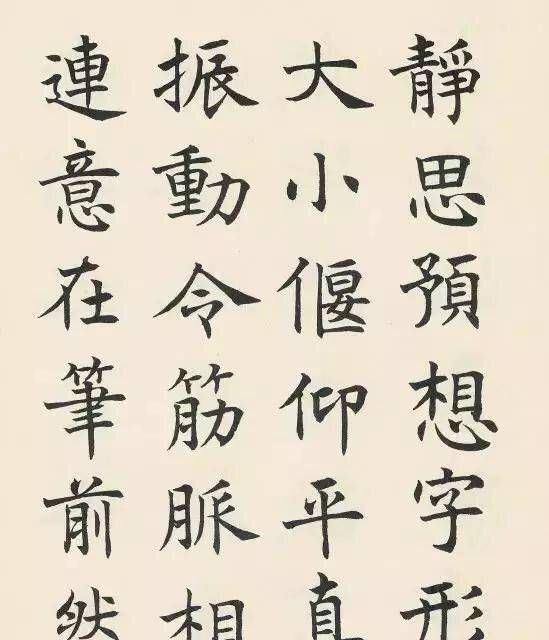 靜思預想字形
大小偃仰平直
振動令筋脈相
連意在筆前然